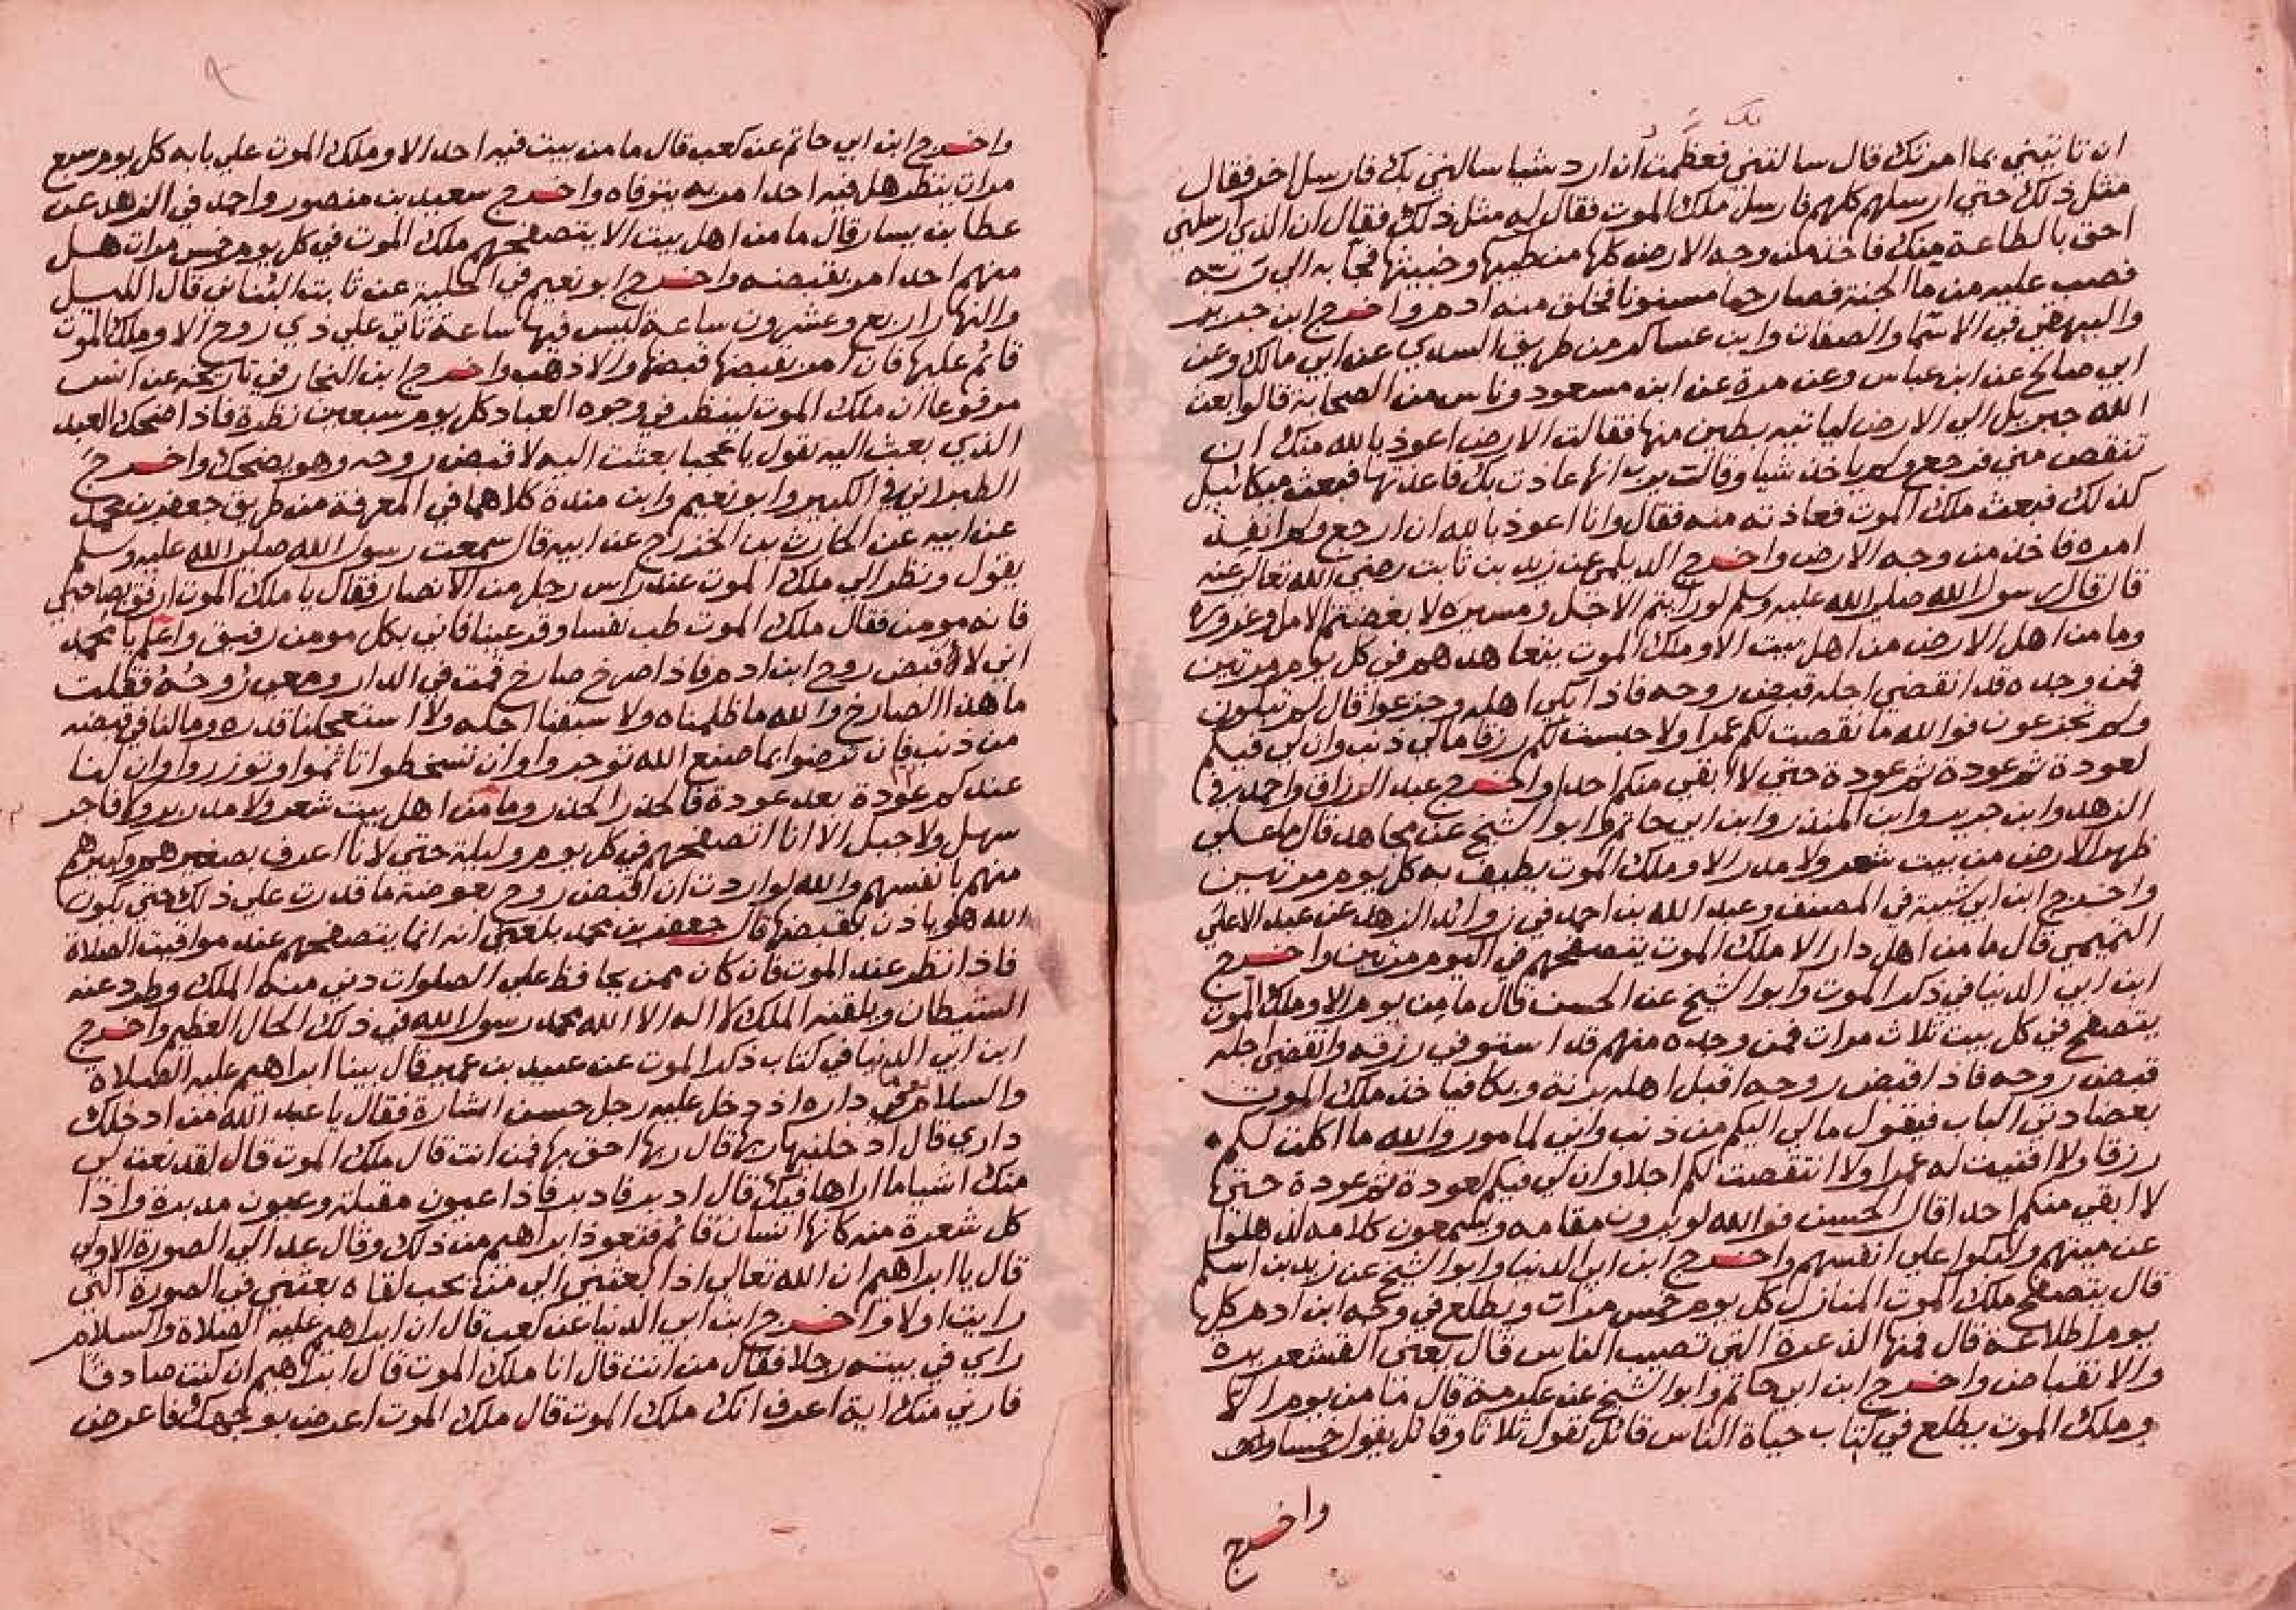 ان تاتيني بما امرتك قال سالتني بك فعظمت ان ارد شيا سالني بك فارسل اخر فقال
مثل ذلك حتي ارسلهم كلهم فارسل ملك الموت فقال له مثل ذلك فقال ان الذي ارسلني
احق بالطاعة منك فاخذ من وجه الارض كلها من طيبها وخبيثها فجا به الي ربه
فصب عليه من ما الجنة فصار حما مسنونا فخلق منه ادم واخرج ابن جرير
والبيهقي في الاسما والصفات وابن عساكر من طريق السدي عن ابي مالك وعن
ابي صالح عن ابن عباس وعن مرة عن ابن مسعود وناس من الصحابة قالوا بعث
الله جبريل الي الارض لياتيه بطين منها فقالت الارض اعوذ بالله منك ان
تنقص مني فرجع ولم ياخذ شيا وقالت يرب انها عاذت بك فاعذتها فبعث ميكائيل
كذلك فبعث ملك الموت فعاذته منه فقال وانا اعوذ بالله ان ارجع ولم انفذ
امره فاخذ من وجه الارض واخرج الديلمي عن زيد بن ثابت رضي الله تعالي عنه
قال قال رسول الله صلي الله عليه وسلم لو رايتم الاجل ومسيره لابغضتم الامل وغروره
وما من اهل الارض من اهل بيت الا وملك الموت يتعاهدهم في كل يوم مرتين
فمن وجده قد انقضي اجله قبض روحه فاذا بكي اهله وجزعوا قال لم تبكون
ولم تجزعون فوالله ما نقصت لكم عمرا ولا حبست لكم رزقا مالي ذنب وان لي فيكم
لعودة ثم عودة ثم عودة حتي لا ابقي منكم احدا واخرج عبد الرزاق واحمد في
الزهد وابن جرير وابن المنذر وابن ابي حاتم وابو الشيخ عن مجاهد قال ما علي
ظهر الارض من بيت شعر ولا مدر الا وملك الموت يطيف به كل يوم مرتين
واخرج ابن ابي شيبة في المصنف وعبد الله بن احمد في زوائد الزهد عن عبد الاعلي
التميمي قال ما من اهل دار الا ملك الموت يتصفحهم في اليوم مرتين واخرج
ابن ابي الدنيا في ذكر الموت وابو الشيخ عن الحسن قال ما من يوم الا وملك الموت
يتصفح في كل بيت ثلاث مرات فمن وجده منهم قد استوفي رزقه وانقضي اجله
قبض روحه فاذا قبض روحه اقبل اهله برنة وبكا فياخذ ملك الموت
بعضادتي الباب فيقول مالي اليكم من ذنب واني لمامور والله ما اكلت لكم
رزقا ولا افنيت له عمرا ولا انتقصت لكم اجلا وان لي فيكم لعودة ثم عودة حتي
لا ابقي منكم احدا قال الحسن فوالله لو يرون مقامه ويسمعون كلامه لذهلوا
عن ميتهم ولبكوا علي انفسهم واخرج ابن ابي الدنيا وابو الشيخ عن زيد بن اسلم
قال يتصفح ملك الموت المنازل كل يوم خمس مرات ويطلع في وجه ابن ادم كل
يوم اطلاعة قال فمنها الذعرة التي تصيب الناس قال يعني القشعريرة
والانقباض واخرج ابن ابي حاتم وابو الشيخ عن عكرمة قال ما من يوم الا
وملك الموت يطلع في كتاب حياة الناس قائل يقول ثلاثا وقائل يقول خمسا
واخرج
واخرج ابن ابي حاتم عن كعب قال ما من بيت فيه احد الا وملك الموت علي بابه كل يوم سبع
مرات ينظر هل فيه احد امر به يتوفاه واخرج سعيد بن منصور واحمد في الزهد عن
عطا بن يسار قال ما من اهل بيت الا يتصفحهم ملك الموت في كل يوم خمس مرات هل
منهم احد امر بقبضه واخرج ابو نعيم في الحلية عن ثابت البناني قال الليل
والنهار اربع وعشرون ساعة ليس فيها ساعة تاتي علي ذي روح الا وملك الموت
قائم عليها فان امر بقبضها قبضها والا ذهب واخرج ابن النجار في تاريخه عن انس
مرفوعا ان ملك الموت لينظر في وجوه العباد كل يوم سبعين نظرة فاذا ضحك العبد
الذي بعث اليه يقول يا عجبا بعثت اليه لاقبض روحه وهو يضحك واخرج
الطبراني في الكبير وابو نعيم وابن مندة كلاهما في المعرفة من طريق جعفر بن محمد
عن ابيه عن الحارث بن الخزرج عن ابيه قال سمعت رسول الله صلي الله عليه وسلم
يقول ونظر الي ملك الموت عند راس رجل من الانصار فقال يا ملك الموت ارفق بصاحبي
فانه مومن فقال ملك الموت طب نفسا وقر عينا فاني بكل مومن رفيق واعلم يا محمد
اني لاقبض روح ابن ادم فاذا صرخ صارخ قمت في الدار ومعي روحه فقلت
ما هذا الصارخ والله ما ظلمناه ولا سبقنا اجله ولا استعجلنا قدره وما لنا في قبضه
من ذنب فان ترضوا بما صنع الله توجروا وان تسخطوا تاثموا وتوزروا وان لنا
عندكم عودة بعد عودة فالحذر الحذر وما من اهل بيت شعر ولا مدر بر ولا فاجر
سهل ولا جبل الا انا اتصفحهم في كل يوم وليلة حتي لانا اعرف بصغيرهم وكبيرهم
منهم بانفسهم والله لو اردت ان اقبض روح بعوضة ما قدرت علي ذلك حتي يكون
الله هو ياذن بقبضها قال جعفر بن محمد بلغني انه انما يتصفحهم عند مواقيت الصلاة
فاذا نظر عند الموت فان كان ممن يحافظ علي الصلوات دني منه الملك وطرد عنه
الشيطان ويلقنه الملك لا اله الا الله محمد رسول الله في ذلك الحال العظيم واخرج
ابن ابي الدنيا في كتاب ذكر الموت عن عبيد بن عمير قال بينا ابراهيم عليه الصلاة
والسلام يوما في داره اذ دخل عليه رجل حسن الشارة فقال يا عبد الله من ادخلك
داري قال ادخلنيها ربها قال ربها احق بها فمن انت قال ملك الموت قال لقد نعت لي
منك اشيا ما اراها فيك قال ادبر فادبر فاذا عيون مقبلة وعيون مدبرة واذا
كل شعرة منه كانها انسان قائم فتعوذ ابراهيم من ذلك وقال عد الي الصورة الاولي
قال يا ابراهيم ان الله تعالي اذا بعثني الي من يحب لقاه بعثني في الصورة التي
رايت اولا واخرج ابن ابي الدنيا عن كعب قال ان ابراهيم عليه الصلاة والسلام
راي في بيته رجلا فقال من انت قال انا ملك الموت قال ابراهيم ان كنت صادقا
فارني منك اية اعرف انك ملك الموت قال ملك الموت اعرض بوجهك فاعرض